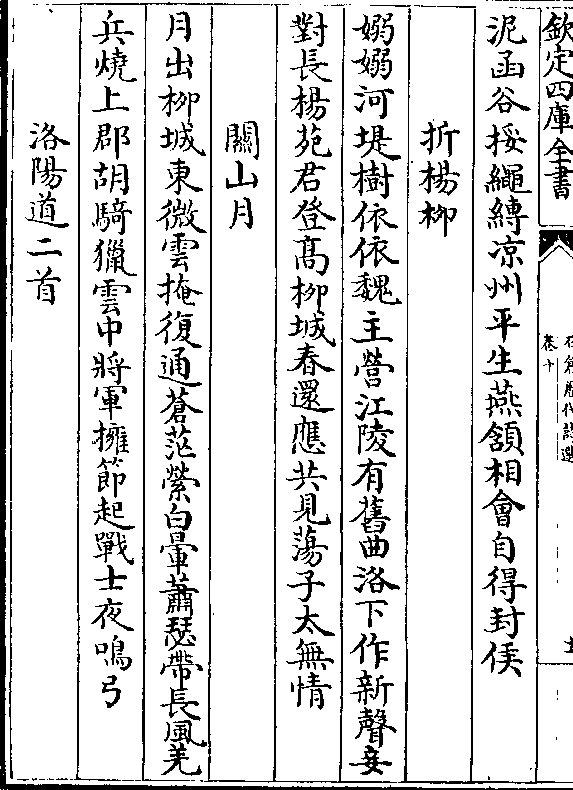 欽定四庫全書
卷十
泥函谷挼繩縛凉州平生燕頷相會自得封侯
折楊栁
嫋嫋河堤樹依依魏主營江陵有舊曲洛下作新聲妾
對長楊苑君登髙栁城春還應共見蕩子太無情
關山月
月出栁城東微雲掩復通蒼茫縈白暈蕭瑟帶長風羌
兵燒上郡胡騎獵雲中將軍擁節起戰士夜鳴弓
洛陽道二首